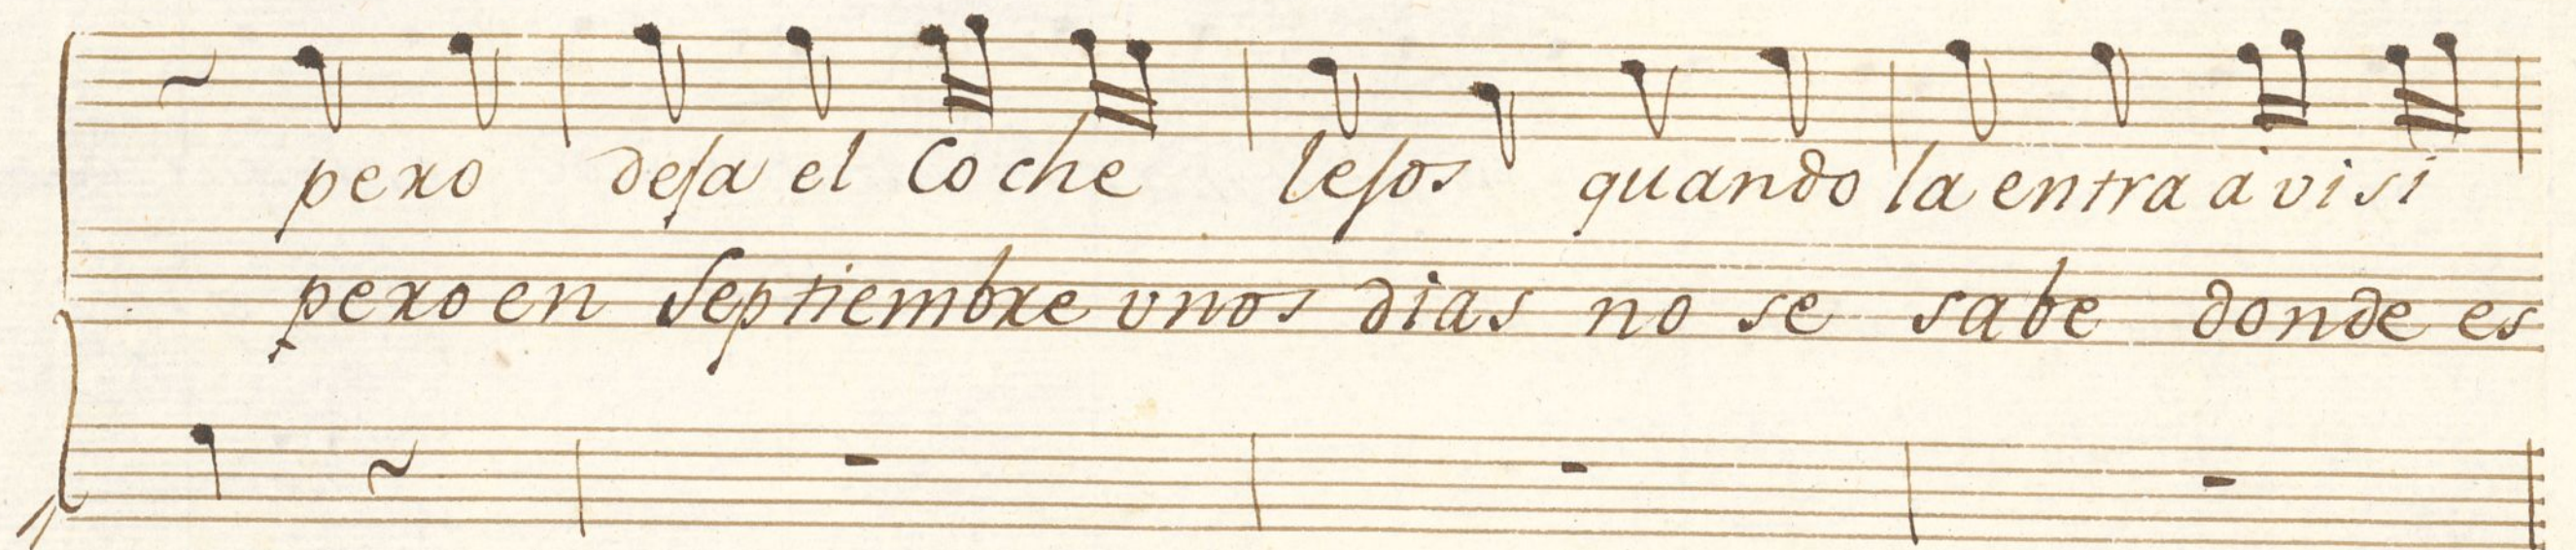 pero desa el Coche lesos quando la entra a visi
pero en Septiembre vnos dias no se sabe donde es